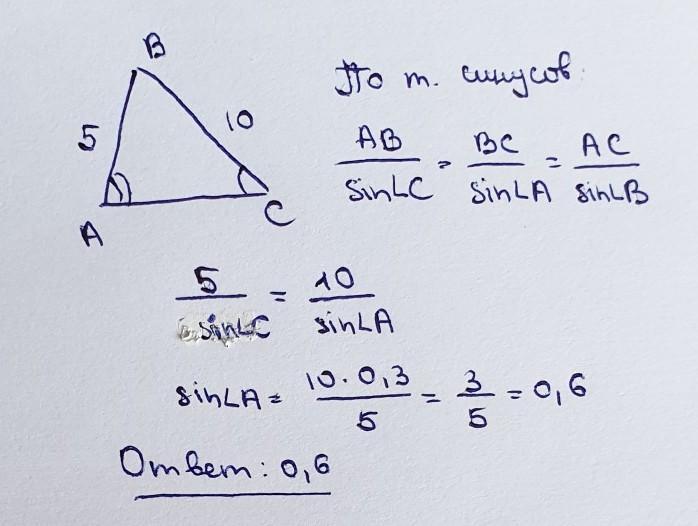 B
По т. синусов:
5
10
AB/sin∠C = BC/sin∠A = AC/sin∠B
A
C
5/sin∠C = 10/sin∠A
sin∠A = 10·0,3/5 = 3/5 = 0,6
Ответ: 0,6